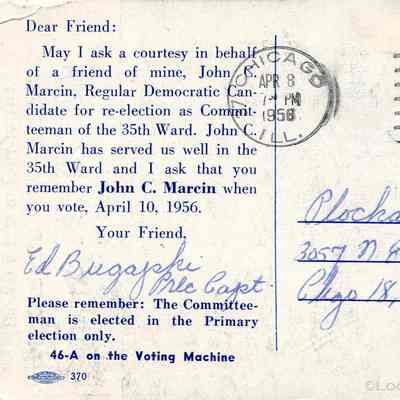 Dear Friend:
May I ask a courtesy in behalf
of a friend of mine, John C.
Marcin, Regular Democratic Can-
didate for re-election as Commit-
teeman of the 35th Ward. John C.
Marcin has served us well in the
35th Ward and I ask that you
remember John C. Marcin when
you vote, April 10, 1956.
Your Friend,
Ed Bugajski
Prec Capt.
Please remember: The Committee-
man is elected in the Primary
election only.
46-A on the Voting Machine
370
CHICAGO
APR 8
PM
1956
ILL.
Plocka
3057 N.
Chgo 18,